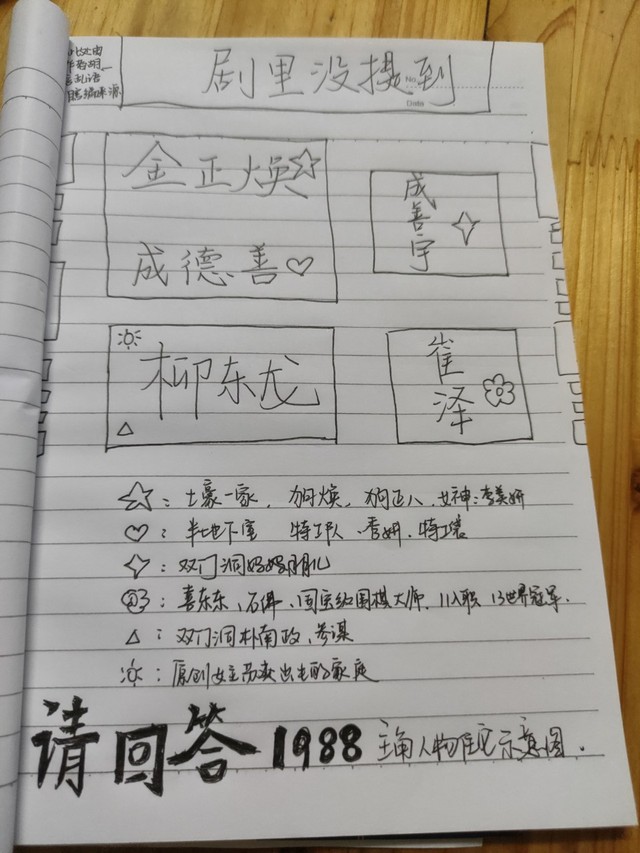 剧里没摄到
No.
Date
金正焕
成德善
成善宇
柳东龙
崔泽
：土豪一家，狗焕，狗正八，女神：李美妍
：半地下室 特工队、秀妍、特工
：双门洞妈妈朋儿
：喜东东、石佛、国宝级围棋大师、11入职 13世界冠军.
：双门洞朴南政、参谋
：原创女主
请回答1988 主角人物住宅示意图.